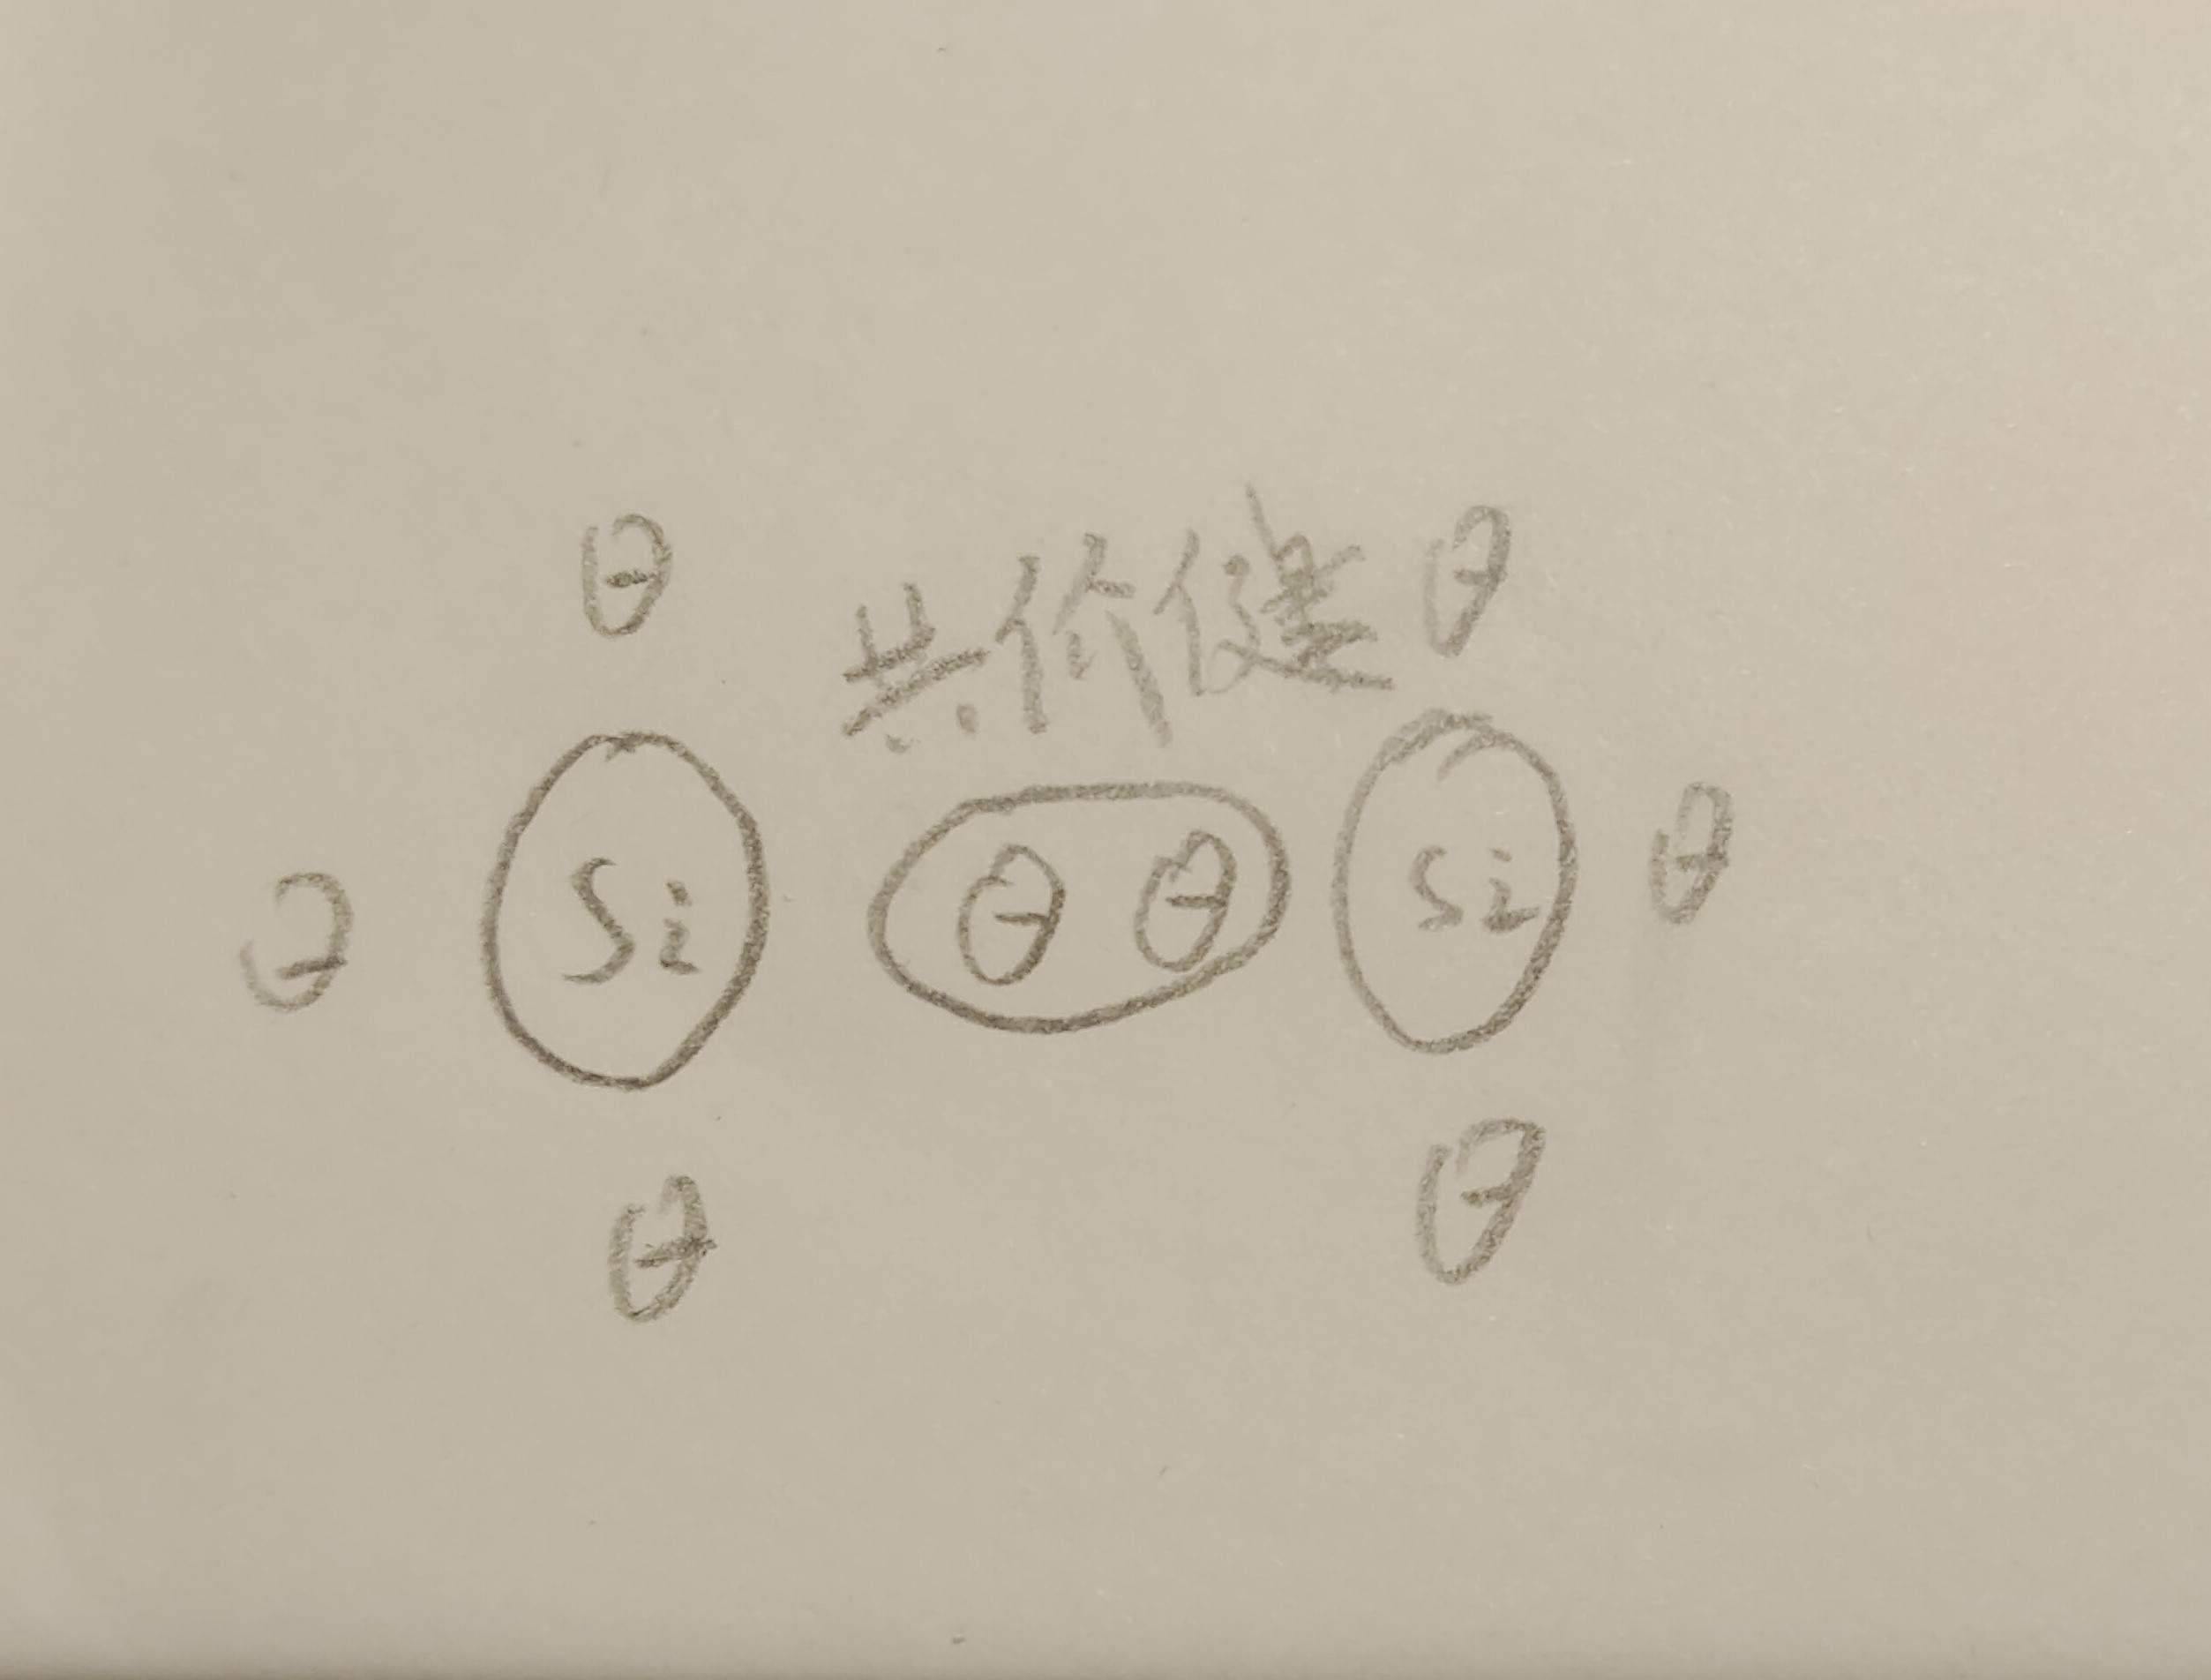 共价健
Si
Si